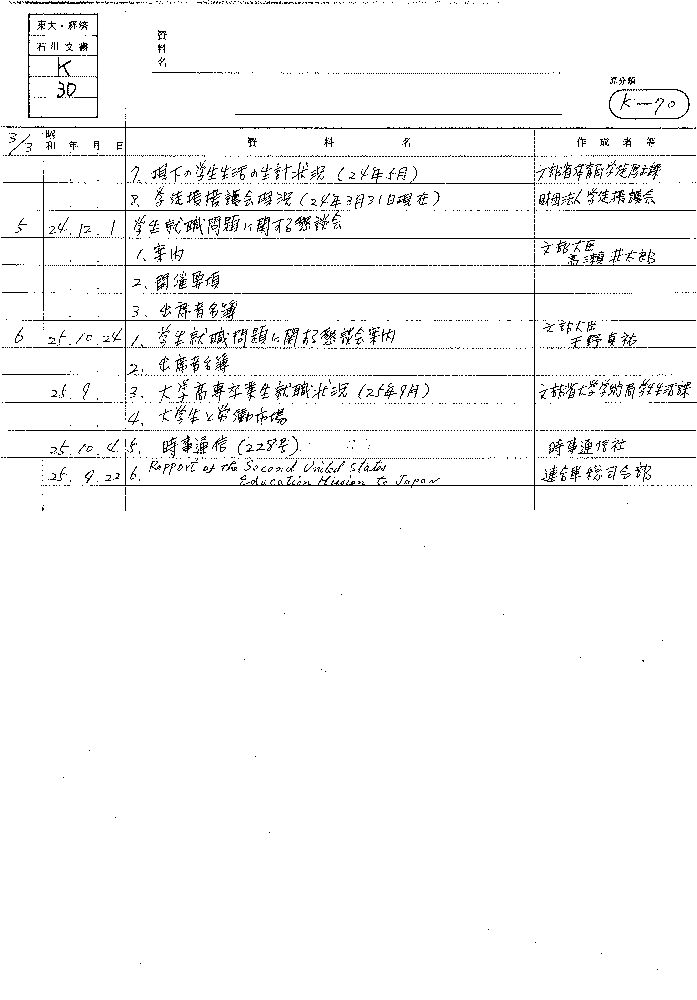 東大・経済
石川文書
K
30
資料名
原分類
K-70
3/3
昭和 年 月 日 資料名 作成者等
7. 現下の学生生活の生計状況 (24年5月)
8. 学徒援護議会概況 (24年3月31日現在) 財団法人学徒援護会
5 24. 12. 1 学生就職問題に関する懇談会
1. 案内 文部大臣 高瀬荘太郎
2. 開催要項
3. 出席者名簿
6 25. 10. 24 1. 学生就職問題に関する懇談会案内 文部大臣 天野貞祐
2. 出席者名簿
25. 9 3. 大学高専卒業生就職状況 (25年9月) 文部省大学学術局学生生活課
4. 大学生と労働市場
25. 10. 4 5. 時事通信 (228号) 時事通信社
25. 9. 22 6. Rapport of the Second United States
Education Mission to Japan 連合軍総司令部